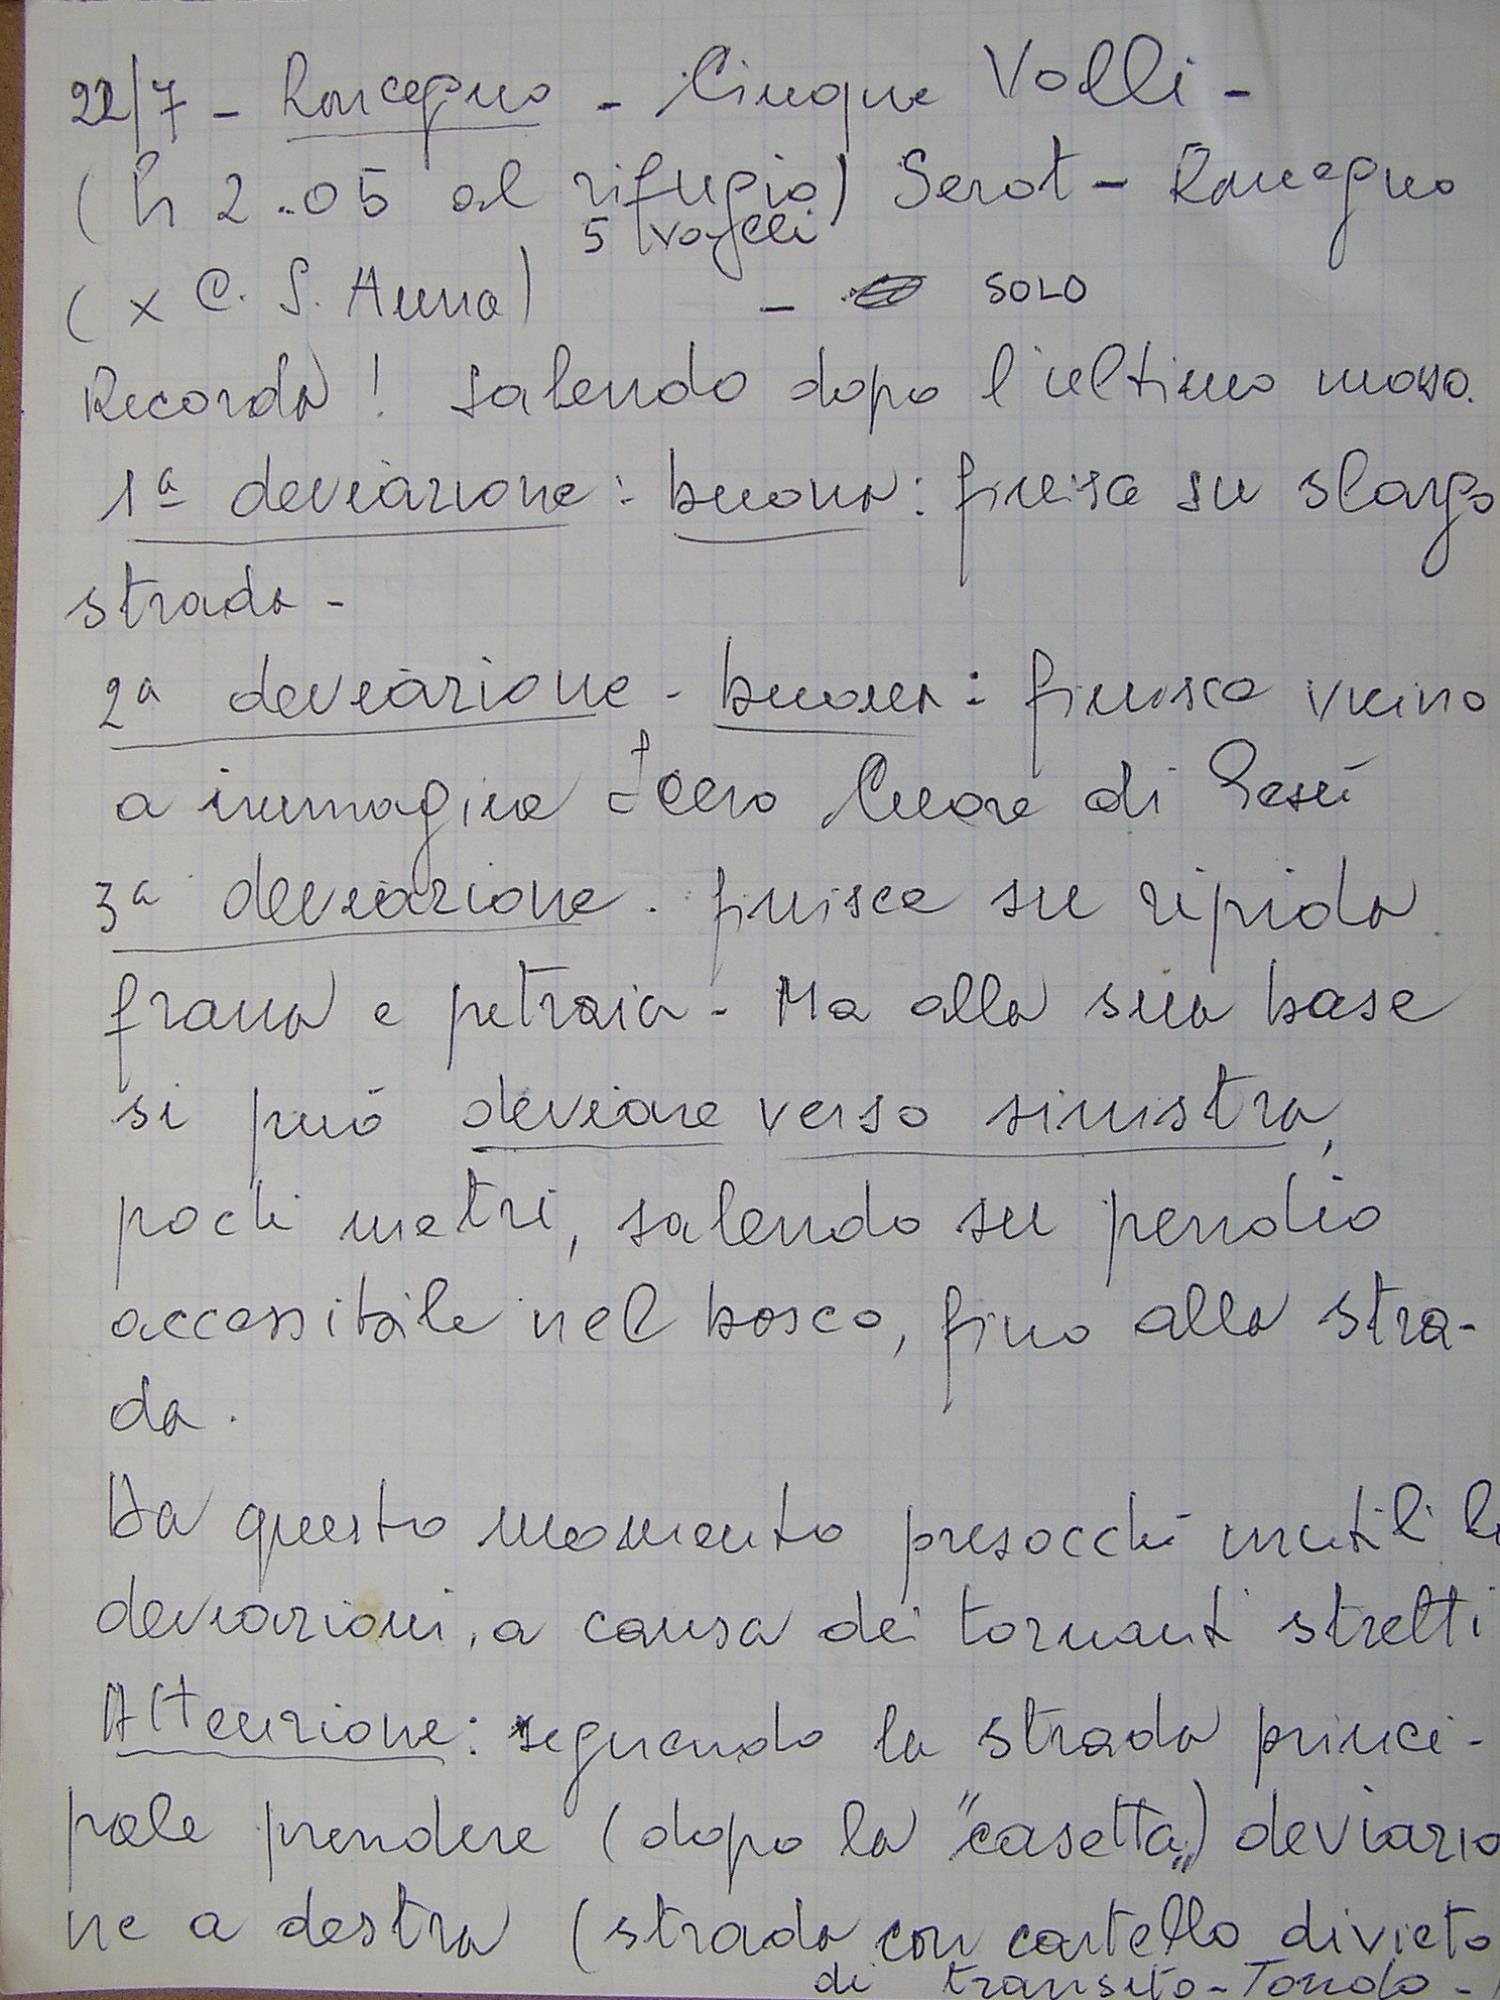 22/7 - Roncegno - Cinque Valli -
(h 2.05 al rifugio) Serot - Roncegno
5 valli
(x C. S. Anna) - SOLO
Ricorda! Salendo dopo l'ultimo maso.
1ª deviazione: buona: finisce su slargo
strada -
2ª deviazione - buona: finisce vicino
a immagine Sacro Cuore di Gesù
3ª deviazione. finisce su ripida
frana e petraia - Ma alla sua base
si può deviare verso sinistra,
pochi metri, salendo su pendio
accessibile nel bosco, fino alla stra-
da.
Da questo momento presocchè inutili le
deviazioni, a causa dei tornanti stretti
Attenzione: seguendo la strada princi-
pale prendere (dopo la "casetta") deviazio
ne a destra (strada con cartello divieto
di transito - Tondo -